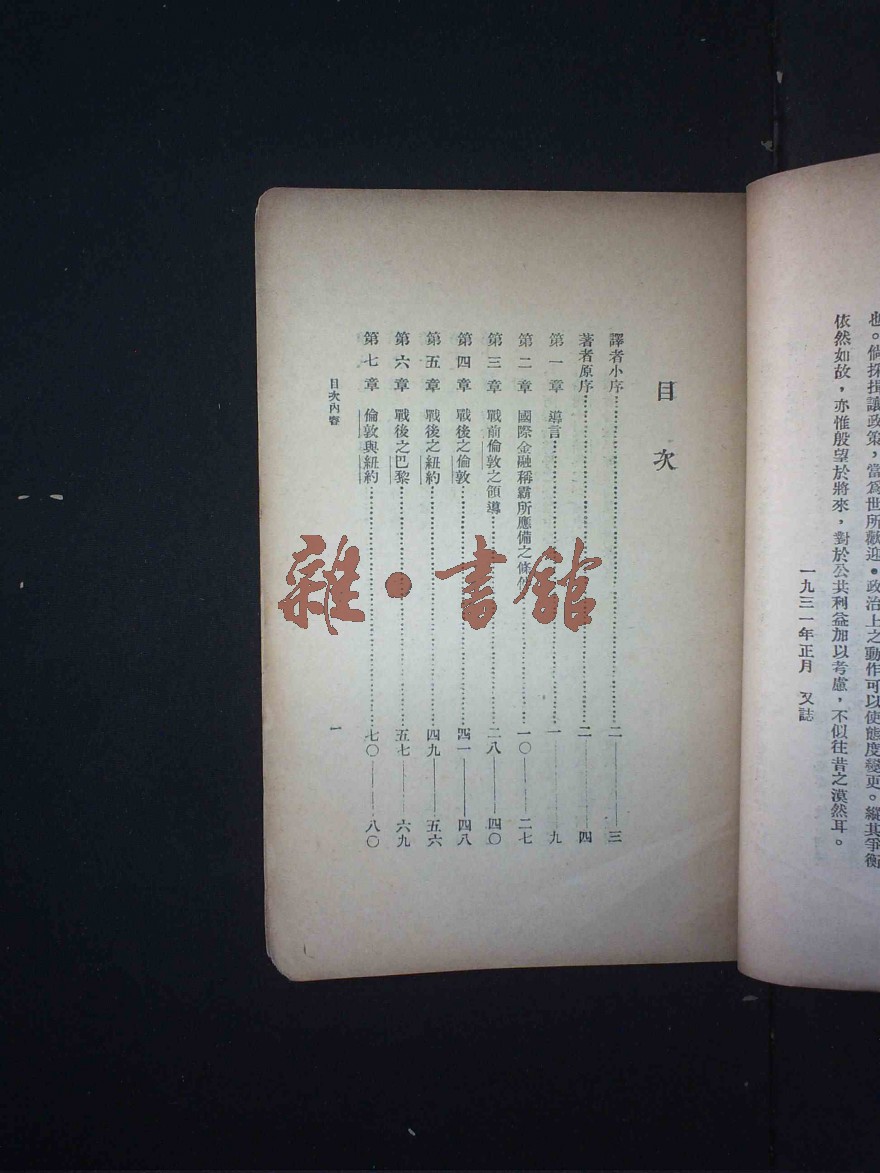 也。倘採揖讓政策，當爲世所歡迎。政治上之動作可以使態度變更。縱其爭衡
依然如故，亦惟殷望於將來，對於公共利益加以考慮，不似往昔之漠然耳。
一九三一年正月　又誌
目次
譯者小序……二——三
著者原序……二——四
第一章　導言……一——九
第二章　國際金融稱霸所應備之條件……一〇——二七
第三章　戰前倫敦之領導……二八——四〇
第四章　戰後之倫敦……四一——四八
第五章　戰後之紐約……四九——五六
第六章　戰後之巴黎……五七——六九
第七章　倫敦與紐約……七〇——八〇
目次內容
一
雜·書館